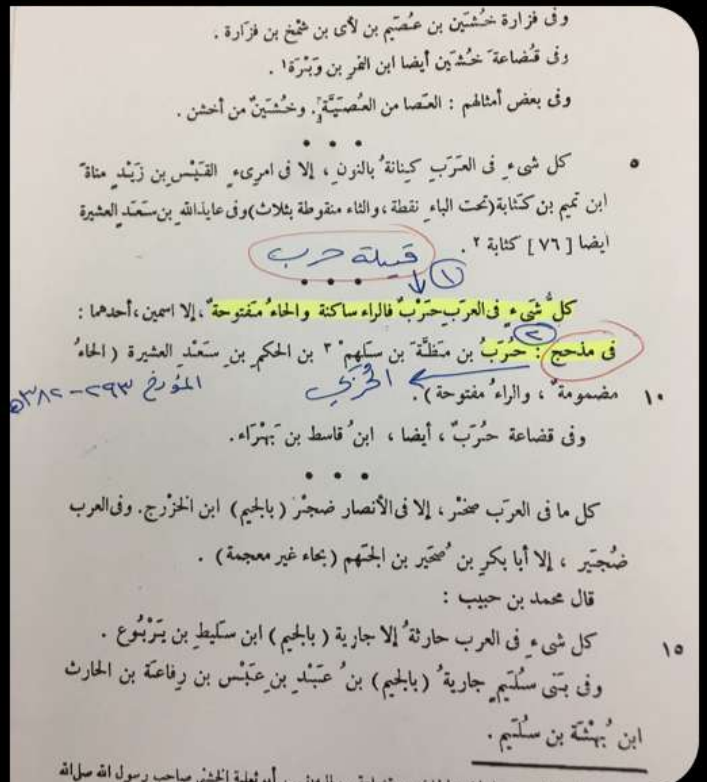 وفى فزارة خُشَين بن عُصَيم بن لأى بن شمْخ بن فزارة .
وفى قضاعة خُشَين أيضا ابن النمر بن وَبْرَة ١ .
وفى بعض أمثالهم : العَصا من العُصَيَّة . وخُشَينٌ من أخشن .
• • •
٥ كل شىء فى العَرَب كِنانةُ بالنون ، إلا فى امرىء القَيْس بن زَيْد مناةَ
ابن تميم بن كَثابة (تحت الباء نقطة ، والثاء منقوطة بثلاث) وفى عايذالله بن سَعَد العشيرة
ايضا [ ٧٦ ] كثابة ٢ .
قبيلة حرب
• • • ١
كلُّ شَىء فى العرب حَرْبٌ فالراء ساكنة والحاءُ مَفتوحةٌ ، إلا اسمين ، أحدهما :
٢
فى مذحج : حُرَبُ بن مَظَّةَ بن سَلهم ٣ بن الحكم بن سَعَد العشيرة ( الحاءُ
الحُرَبي
المؤرخ ٢٩٣-٣٨٢هـ
١٠ مضمومةٌ ، والراءُ مفتوحة ) .
وفى قضاعة حُرَبٌ ، أيضا ، ابنُ قاسط بن بَهْرَاء .
• • •
كل ما فى العرَب صخْر ، إلا فى الأنصار ضجْر ( بالجيم ) ابن الخزْرج . وفى العرب
ضُجَير ، إلا أبا بكر بن صُحَير بن الجَهم ( بحاء غير معجمة ) .
قال محمد بن حبيب :
١٥ كل شىء فى العرب حارثةُ إلا جارية ( بالجيم ) ابن سَليط بن يَرْبُوع .
وفى بَنى سُلَيم جاريةُ ( بالجيم ) بنُ عَبْد بن عَبْس بن رِفاعَة بن الحارث
ابن بُهْثَة بن سُلَيم .
أبو ثعلبة الخشنى صاحب رسول الله صلى الله